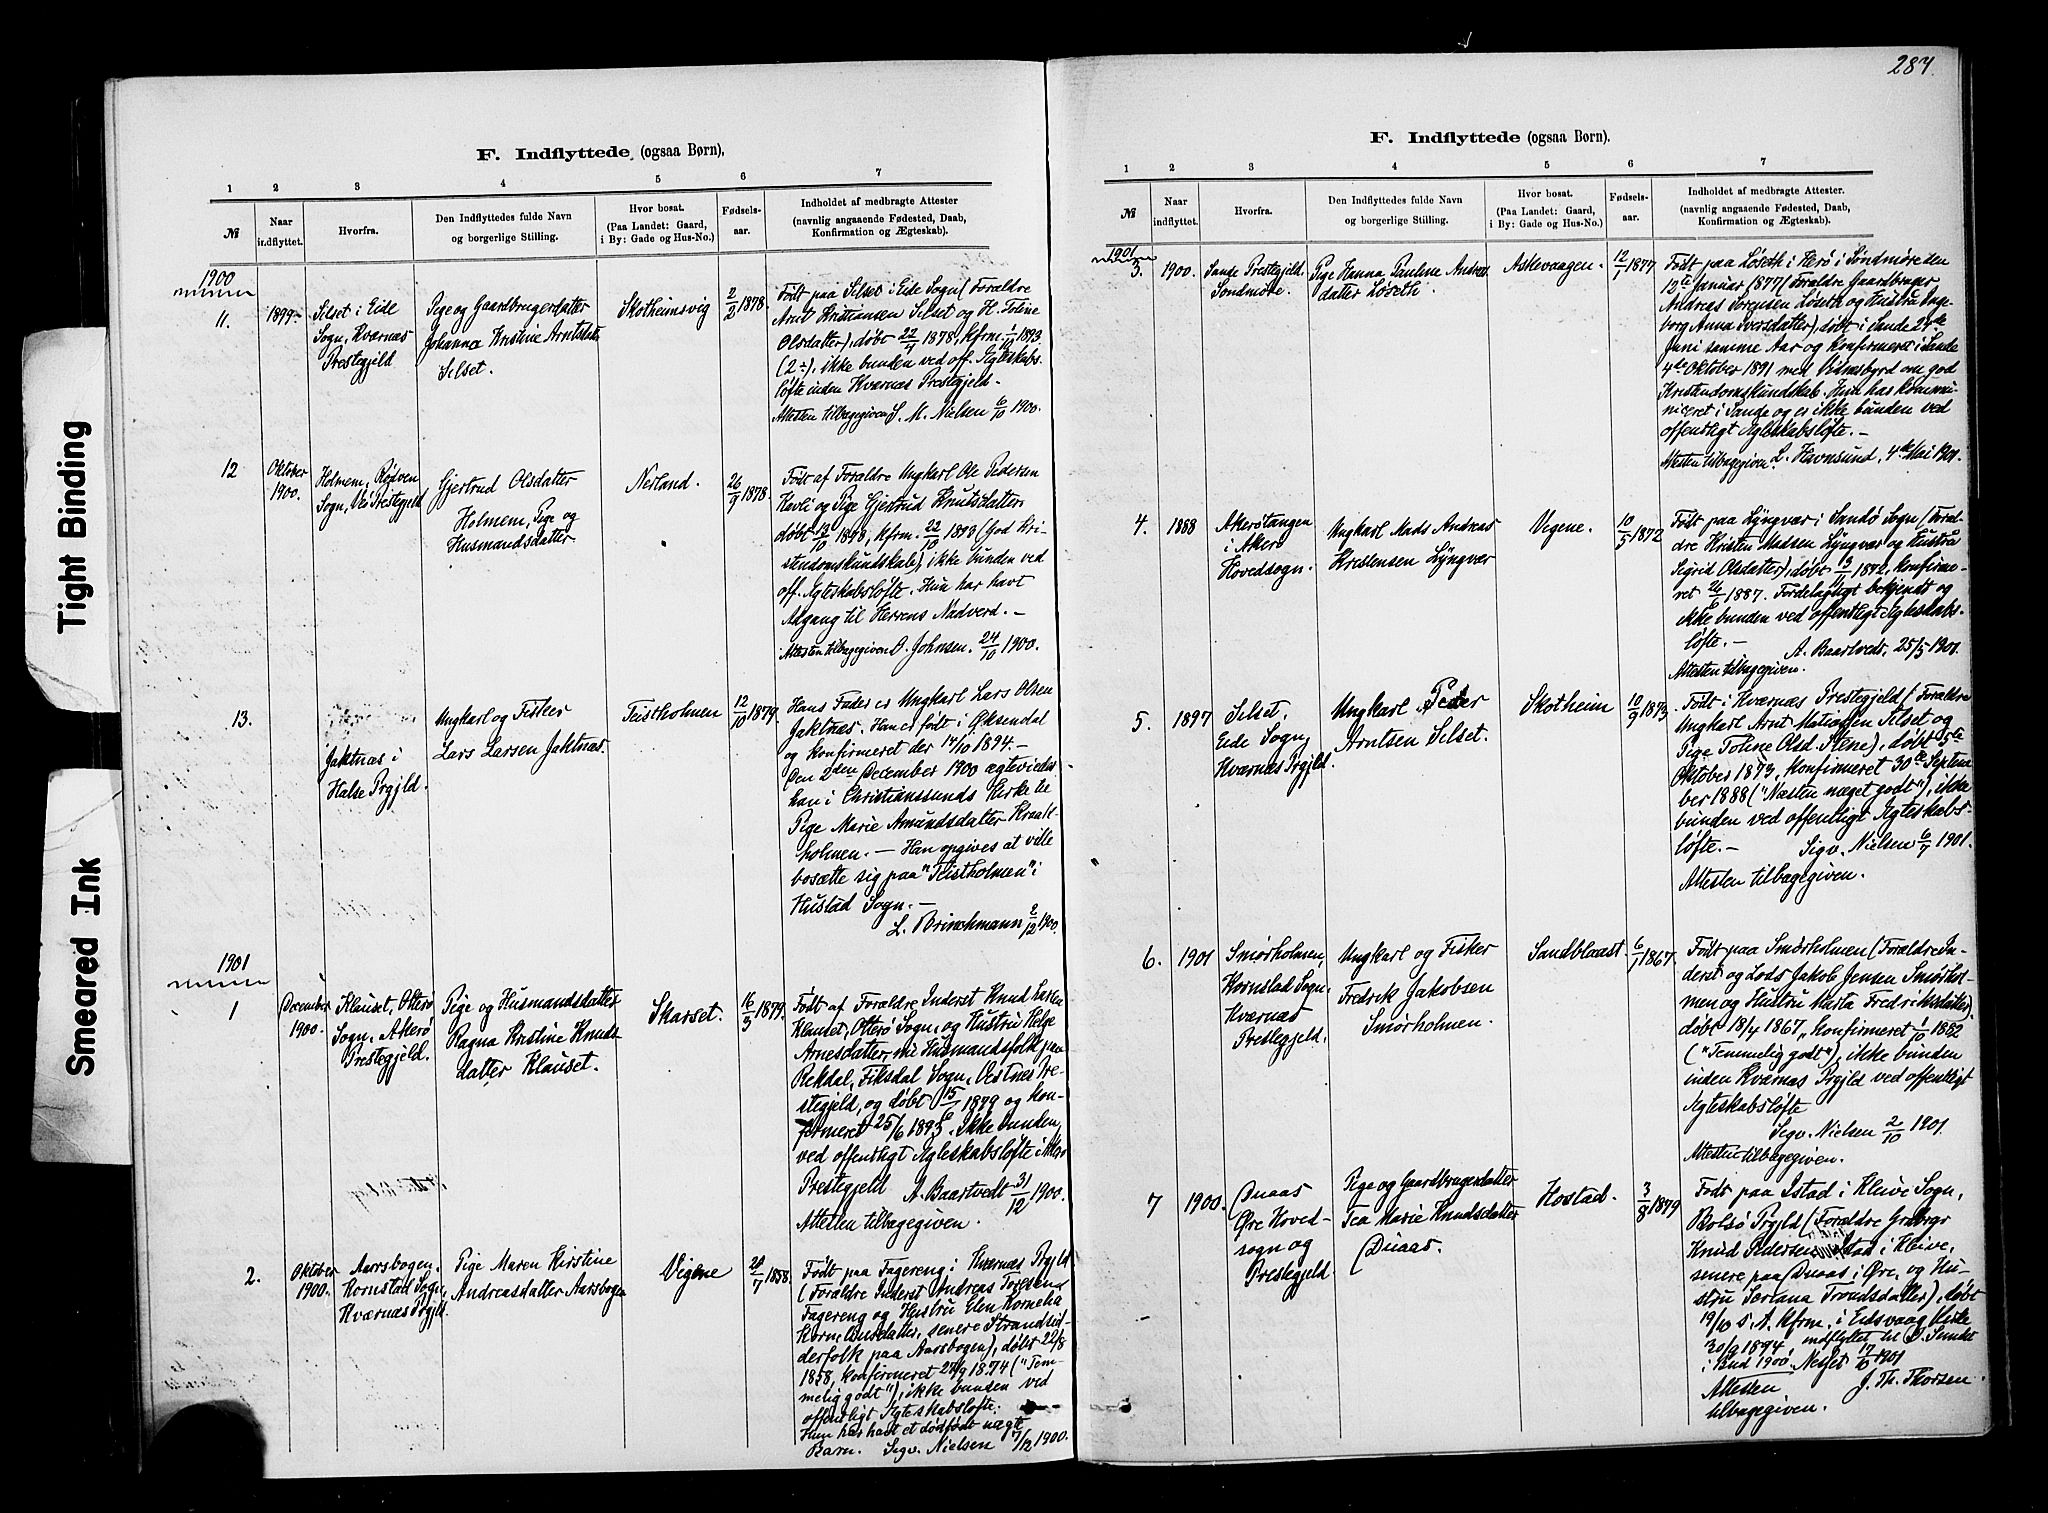 287.
Tight Binding
Smeared Ink
F. Indflyttede (ogsaa Børn).
1 2 3 4 5 6 7
№
Naar indflyttet.
Hvorfra.
Den Indflyttedes fulde Navn
og borgerlige Stilling.
Hvor bosat.
(Paa Landet: Gaard,
i By: Gade og Hus-No.)
Fødsels-
aar.
Indholdet af medbragte Attester
(navnlig angaaende Fødested, Daab,
Konfirmation og Ægteskab).
1900
11.
1899
Silset i Eide
Sogn, Kværnæs
Prestegjeld
Pige og Gaardbrugerdatter
Johanna Kristine Arntsdatter
Silset.
Skotheimsvig
2/2 1878
Født paa Silset i Eide Sogn (Foraldre
Arnt Kristiansen Silset og H. Toline
Olsdatter), døbt 22/4 1878, kfrm. 1/10 1893
(2÷), ikke bunden ved off. Ægteskabs-
løfte inden Kværnæs Prestegjeld.
Attesten tilbagegiven S. M. Nielsen 6/10 1900.
12
Oktober
1900.
Holmem, Rødven
Sogn, Veø Prestegjeld
Gjertrud Olsdatter
Holmem, Pige og
Husmandsdatter
Nerland.
26/9 1878
Født af Foraldre Ungkarl Ole Pedersen
Kavli og Pige Gjertrud Knutsdatter,
døbt 13/10 1878, kfrm. 22/10 1893 (God Kri-
stendomskundskab), ikke bunden ved
off. Ægteskabsløfte. Hun har havt
Adgang til Herrens Nadverd. —
Attesten tilbagegiven O. Johnsen. 24/10 1900.
13.
Jaktnæs i
Halse Prgjld.
Ungkarl og Fisker
Lars Larsen Jaktnæs.
Teistholmen
12/10 1879.
Hans Fader er Ungkarl Lars Olsen
Jaktnæs. Han er født i Øksendal
og konfirmeret der 14/10 1894. —
Den 2den December 1900 ægteviedes
han i Christianssunds Kirke til
Pige Marie Amundsdatter Kraak-
holmen. — Han opgives at ville
bosætte sig paa "Teistholmen" i
Hustad Sogn. —
L. Brinchmann 2/12 1900.
1901
1
December
1900.
Klauset, Otterø
Sogn, Akerø
Prestegjeld.
Pige og Husmandsdatter
Ragna Kristine Knuds-
datter Klauset.
Skarset.
16/3 1879.
Født af Forældre Inderst Knud Larsen
Klauset, Otterø Sogn, og Hustru Helge
Arnesdatter, nu Husmandsfolk paa
Rekdal, Fiksdal Sogn, Vestnes Pre-
stegjeld, og døbt 15/6 1879 og kon-
firmeret 25/6 1893. Ikke bunden
ved offentligt Ægteskabsløfte i Akerø
Prestegjeld A. Baartvedt 31/12 1900.
Attesten tilbagegiven.
2.
Oktober
1900.
Aarsbogen,
Kornstad Sogn,
Kværnæs Prgjld.
Pige Maren Kirstine
Andreasdatter Aarsbogen
Vigene
20/7 1858.
Født paa Fagereng i Kværnæs Prgjld
(Foraldre Inderst Andreas Toresen
Fagereng og Hustru Elen Kornelia
Korneliusdatter, senere Strandsid-
derfolk paa Aarsbogen), døbt 22/8
1858, konfirmeret 27/9 1874 ("Tem-
melig godt"), ikke bunden ved
offentligt Ægteskabsløfte.
Hun har havt et dødfødt uægte
Barn. Sigv. Nielsen 7/12 1900.
F. Indflyttede (ogsaa Børn).
1 2 3 4 5 6 7
№
Naar
indflyttet.
Hvorfra.
Den Indflyttedes fulde Navn
og borgerlige Stilling.
Hvor bosat.
(Paa Landet: Gaard,
i By: Gade og Hus-No.)
Fødsels-
aar.
Indholdet af medbragte Attester
(navnlig angaaende Fødested, Daab,
Konfirmation og Ægteskab).
1901
3.
1900.
Sande Prestegjeld.
Søndmøre.
Pige Hanna Pauline Andreas-
datter Løseth.
Askevaagen.
12/1 1877
Født paa Løseth i Herø i Søndmøre den
12te Januar 1877 (Foraldre Gaardbruger
Andreas Sørensen Løseth og Hustru Inge-
borg Anna Iversdatter), døbt i Sande 24de
Juni samme Aar og konfirmeret i Sande
4de Oktober 1891 med Vidnesbyrd om god
Kristendomskundskab. Hun har kommu-
niceret i Sande og er ikke bunden ved
offentligt Ægteskabsløfte. —
Attesten tilbagegiven. L. Havnsund, 4de Mai 1901.
4.
1888
Akerøtangen
i Akerø
Hovedsogn.
Ungkarl Mads Andreas
Kristensen Lyngvær
Vegene.
10/5 1872
Født paa Lyngvær i Sandø Sogn (Foral-
dre Kristen Madsen Lyngvær og Hustru
Sigrid Olsdatter), døbt 1872, konfirme-
ret 26/6 1887. Fordelagtigt bekjendt og
ikke bunden ved offentligt Ægteskabs-
løfte. —
A. Baartvedt, 25/5 1901.
Attesten tilbagegiven.
5.
1897
Silset,
Eide Sogn,
Kværnæs Prgjld.
Ungkarl Peder
Arntsen Silset.
Skotheim
10/9 1873
Født i Kværnæs Prestegjeld (Foraldre
Ungkarl Arnt Silset og
Pige Toline Olsd. Stene), døbt 5te
Oktober 1873, konfirmeret 30te Septem-
ber 1888 ("Næsten meget godt"), ikke
bunden ved offentligt Ægteskabs-
løfte. — Sigv. Nielsen 6/7 1901.
Attesten tilbagegiven.
6.
1901
Smørholmen,
Kornstad Sogn,
Kværnæs
Prestegjeld.
Ungkarl og Fisker
Fredrik Jakobsen
Smørholmen.
Sandblaast
6/1 1867.
Født paa Smørholmen (Foraldre In-
derst og Lods Jakob Jensen Smørhol-
men og Hustru Marta Fredriksdatter),
døbt 18/4 1867, konfirmeret 1/10 1882
("Temmelig godt"), ikke bunden
inden Kværnæs Prgjld ved offentligt
Ægteskabsløfte
Sigv. Nielsen 2/10 1901.
Attesten tilbagegiven.
7
1900.
Duaas
Øre Hoved-
sogn og
Prestegjeld.
Pige og Gaardbrugerdatter
Tea Marie Knudsdatter
Duaas.
Hostad.
3/8 1879
Født paa Istad i Kleive Sogn,
Bolsø Prgjld (Forældre Grdbrgr
Knud Pedersen Istad i Kleive,
senere paa Duaas i Øre, og Hu-
stru Seriana Trondsdatter), døbt
19/10 s. A. kfrm. i Eidsvaag Kirke
30/9 1894, indflyttet til
i Bud 1900. Nesset 17/10 1901
Attesten J. Th. Thorsen.
tilbagegiven.